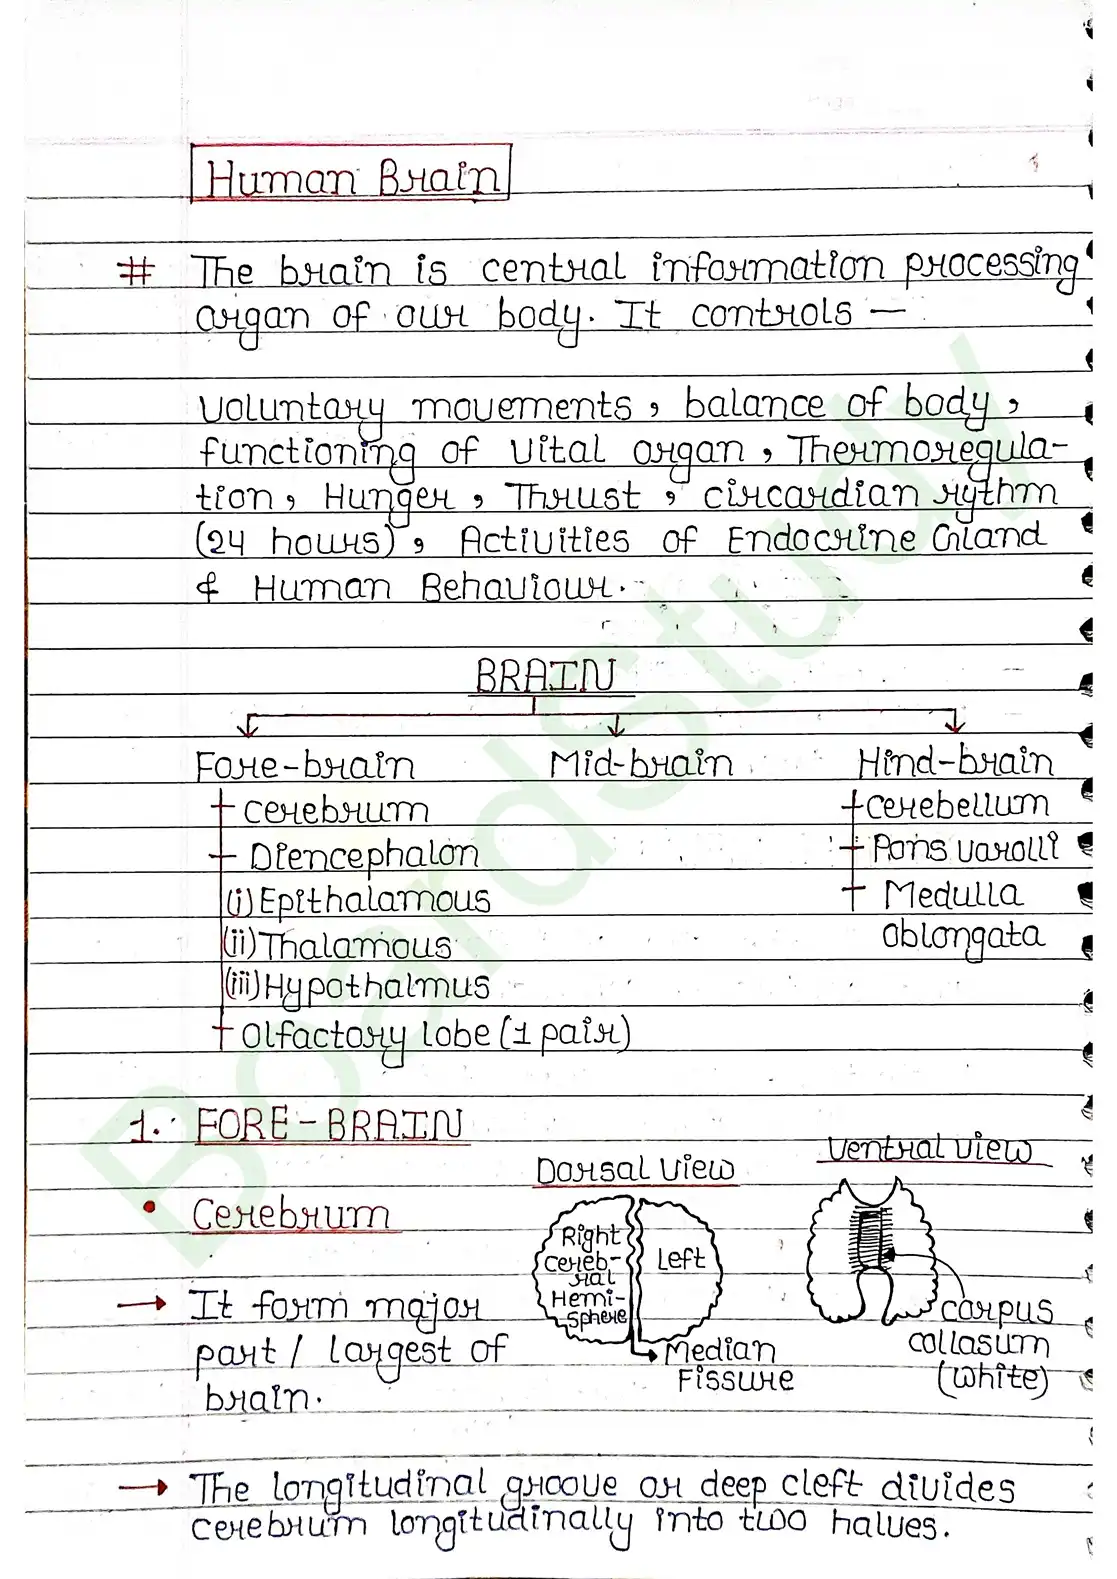 Human Brain
# The brain is central information processing
organ of our body. It controls —
Voluntary movements, balance of body,
functioning of Vital organ, Thermoregula-
tion, Hunger, Thrust, circardian rythm
(24 hours), Activities of Endocrine Gland
& Human Behaviour.
BRAIN
Fore-brain Mid-brain Hind-brain
cerebrum cerebellum
Diencephalon Pons varolli
(i) Epithalamous Medulla
(ii) Thalamous oblongata
(iii) Hypothalmus
olfactory lobe (1 pair)
1. FORE-BRAIN
Dorsal view Ventral view
• Cerebrum
Right
cereb-
ral
Hemi-
sphere
Left
→ It form major
part / largest of
brain.
Median
Fissure
corpus
collasum
(white)
→ The longitudinal groove or deep cleft divides
cerebrum longitudinally into two halves.
BoardStudy